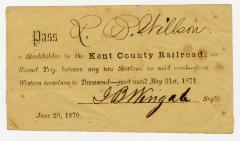 Pass L. D. Willson
a Stockholder in the Kent County Railroad, one
Round Trip between any two Stations on said road—from
Western terminus to Townsend—good until May 31st, 1871.
J B Wingate Supt.
June 20, 1870.